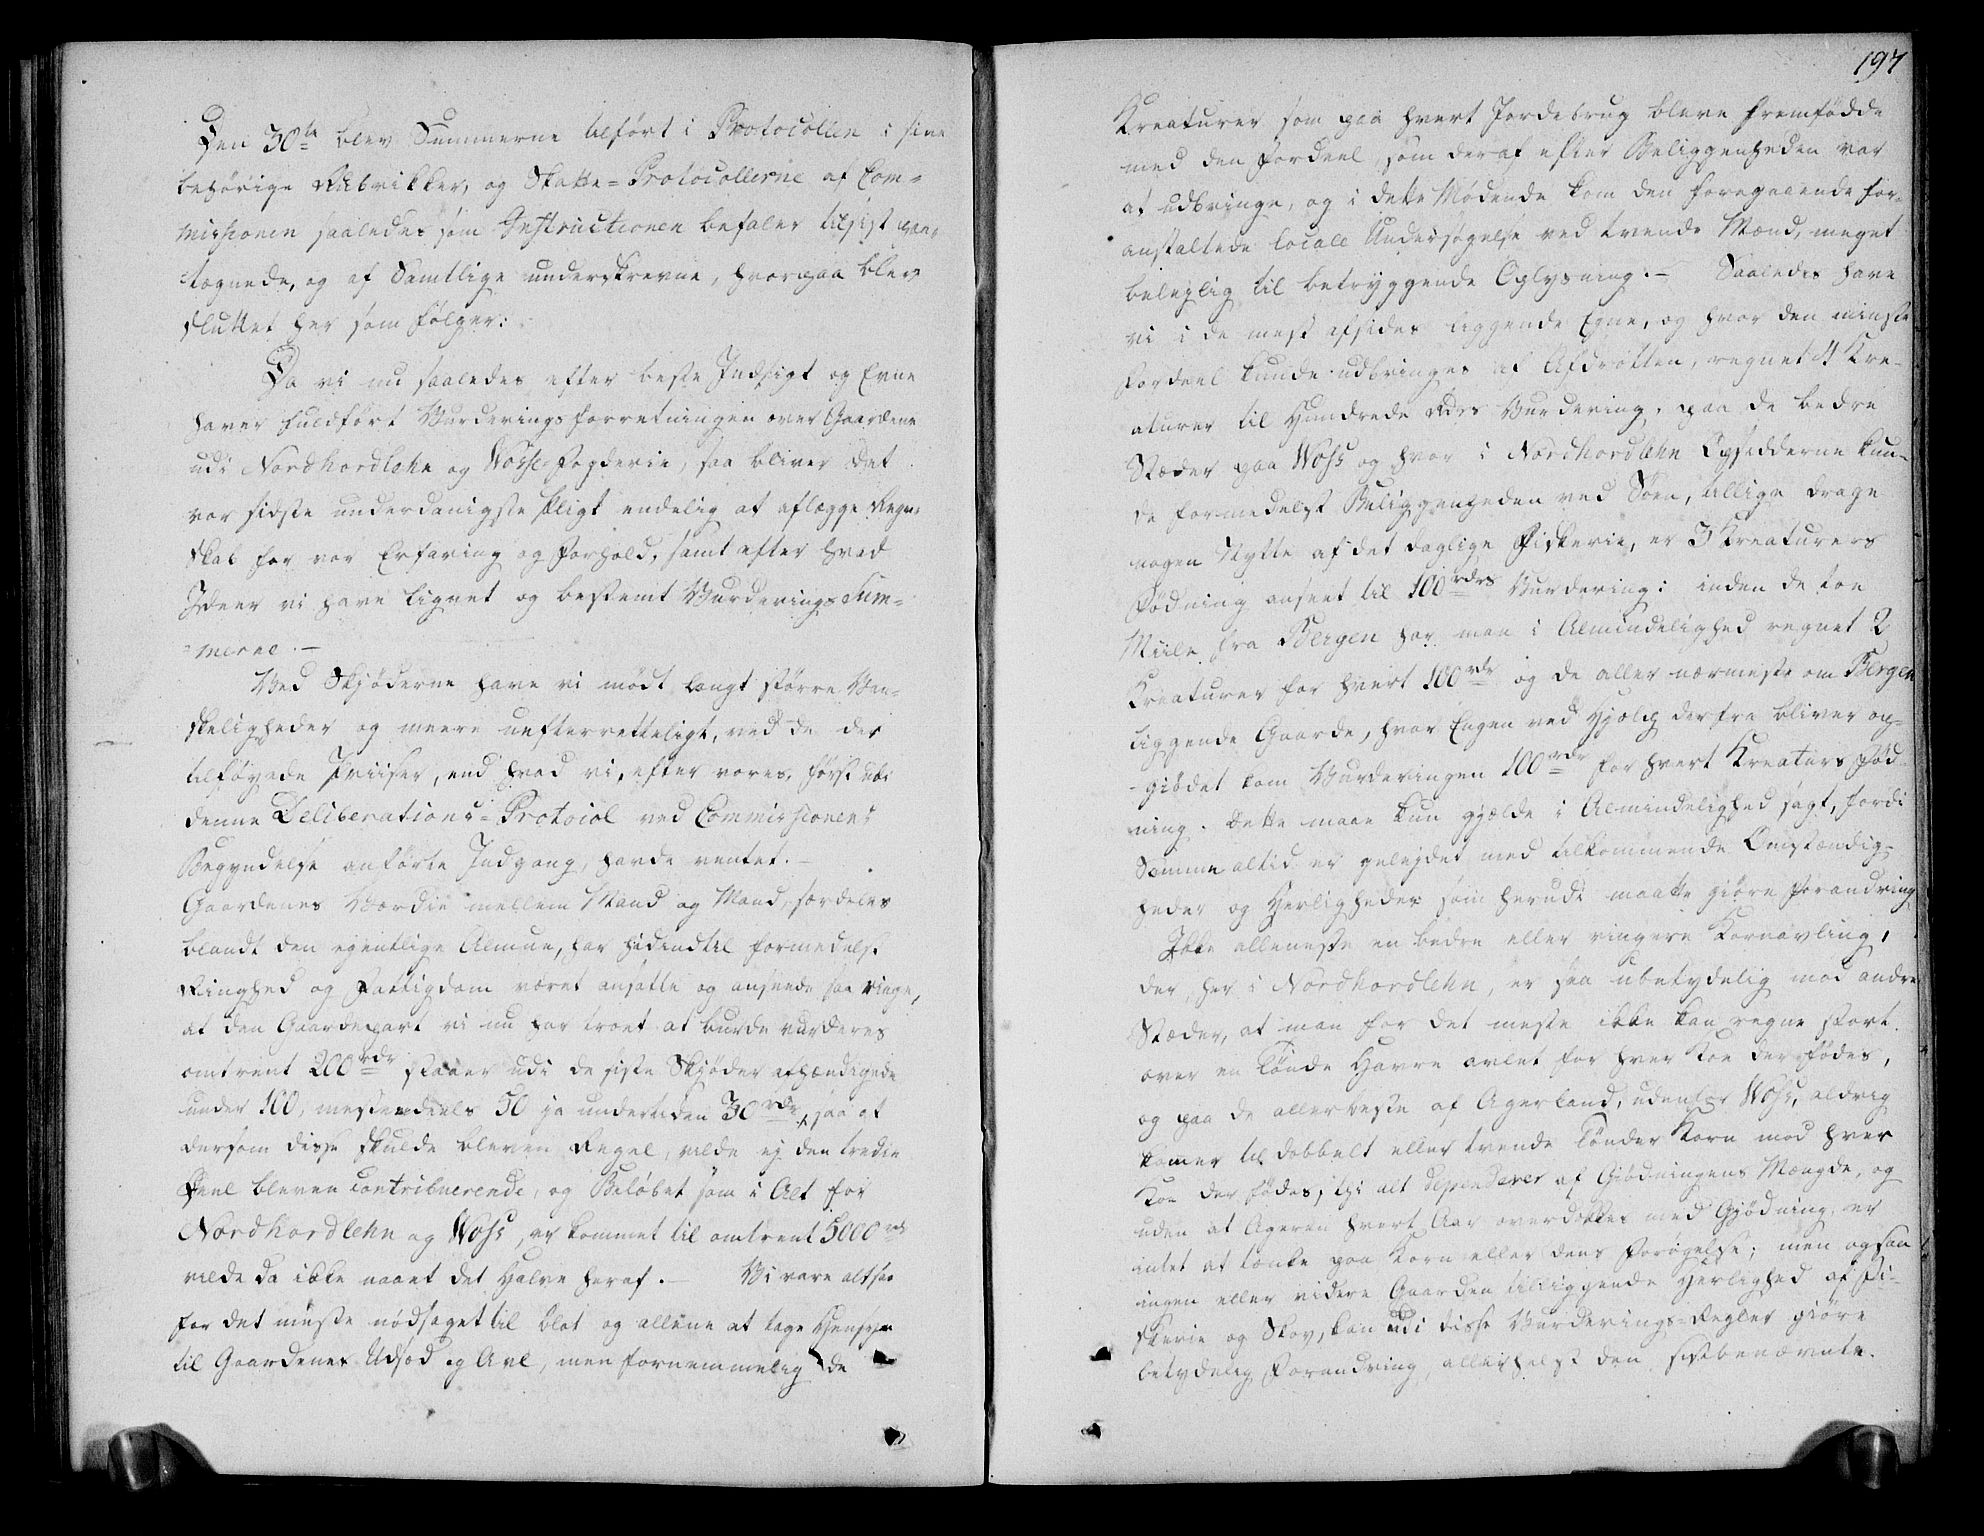 Den 30te blev Summerne tilført i Protocollen i sine
behørige Rubrikker, og Skatte=Protocollerne af Com=
missionen saaledes som Instructionen befaler tilsidst paa=
tegnede, og af Samtlige underskrevne, hvorpaa blev
sluttet her som følger:
Da vi nu saaledes efter beste Indsigt og Evne
haver fuldført Vurderingsforretningen over Gaardene
udi Nordhordlehn og Wosse-Fogderie, saa bliver det
vor sidste underdanigste Pligt endelig at aflægge Regn=
skab for vor Erfaring og Forhold, samt efter hvad
Ideer vi have lignet og bestemt Vurderings Sum=
=merne. -
Ved Skjøderne have vi mødt langt større Van=
skeligheder og meere uefterretteligt, ved de der
tilføyede Priiser, end hvad vi, efter vores, først udi
denne Deliberations=Protocol ved Commissionens
Begyndelse anførte Indgang, havde ventet. -
Gaardenes Værdie mellem Mand og Mand, særdeles
blandt den egentlige Almue, har hidindtil formedelst
Ringhed og Fattigdom været ansatte og ansende saa ringe,
at den Gaardepart vi nu har troet at burde vurderes
omtrent 200 rdr staaer udi de siste Skjøder afhændigede
under 100, mestendeels 50 ja undertiden 30 rdr, saa at
dersom disse skulde bleven Regel, vilde ej den tredie
Deel bleven contribuerende, og Beløbet som i Alt for
Nordhordlehn og Woss, er kommet til omtrent 5000 rd
vilde da ikke naaet det Halve heraf. - Vi vare altsaa
for det meste nødsaget til blot og allene at tage Hensyn
til Gaardenes Udsæd og Avl, men fornemmelig de
197
Kreaturer som paa hvert Jordebrug bleve fremfødde
med den Fordeel, som deraf efter Beliggenheden var
at udbringe, og i dette Mødende kom den foregaaende for=
anstaltede locale Undersøgelse ved tvende Mænd, meget
belejlig til betryggende Oplysning. - Saaledes have
vi i de mest afsides liggende Egne, og hvor den minste
Fordeel kunde udbringes af Afdrotten, regnet 4 Kre=
aturer til Hundrede Rdrs Vurdering, paa de bedre
Stæder paa Woss og hvor i Nordhordlehn Opsidderne kun=
de formedelst Beliggenheden ved Søen, tillige drage
nogen Nytte af det daglige Fiskerie, er 3 Kreaturers
Fødning anseet til 100 rdrs Vurdering: inden de toe
Miile fra Bergen har man i Almindelighed regnet 2
Kreaturer for hvert 100 rdr og de aller nærmeste om Bergen
liggende Gaarde, hvor Engen ved Hjelp derfra bliver op=
giødet kom Vurderingen 100 rdr for hvert Kreaturs Fød=
ning. Dette maae kun gjelde i Almindelighed sagt, fordi
Samme altid er geleydet med tilkommende Omstændig=
heder og Herligheder som herudi maatte giøre Forandring
Ikke alleneste en bedre eller ringere Kornavling,
der, her i Nordhordlehn, er saa ubetydelig mod andre
Stæder, at man for det meste ikke kan regne stort
over en Tønde Havre avlet for hver Koe der fødes,
og paa de allerbeste af Agerland, udenfor Woss, aldrig
komer til dobbelt eller tvende Tønder Korn mod hver
Koe der fødes, thi alt dependerer af Giødningens Mængde, og
uden at Ageren hvert Aar overdækkes med Gjødning, er
intet at tænke paa Korn eller dens Forøgelse; men ogsaa
ingen eller videre Gaarden tilliggende Herlighed af Fi=
skerie og Skov, kan udi disse Vurderings=Regler giøre
betydelig Forandring, allerhelst den sistbenævnte.